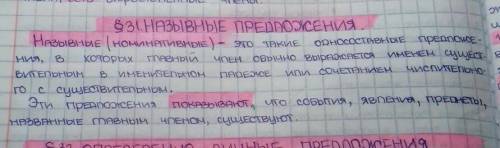 §31 НАЗЫВНЫЕ ПРЕДЛОЖЕНИЯ
НАЗЫВНЫЕ (НОМИНАТИВНЫЕ) - ЭТО ТАКИЕ ОДНОСОСТАВНЫЕ ПРЕДЛОЖЕ-
НИЯ, В КОТОРЫХ ГЛАВНЫЙ ЧЛЕН ОБЫЧНО ВЫРАЖАЕТСЯ ИМЕНЕМ СУЩЕСТ-
ВИТЕЛЬНОМ В ИМЕНИТЕЛЬНОМ ПАДЕЖЕ ИЛИ СОЧЕТАНИЕМ ЧИСЛИТЕЛЬНО-
ГО С СУЩЕСТВИТЕЛЬНОМ.
ЭТИ ПРЕДЛОЖЕНИЯ ПОКАЗЫВАЮТ, ЧТО СОБЫТИЯ, ЯВЛЕНИЯ, ПРЕДМЕТЫ,
НАЗВАННЫЕ ГЛАВНЫМ ЧЛЕНОМ, СУЩЕСТВУЮТ.
ПРЕДЛОЖЕНИЯ